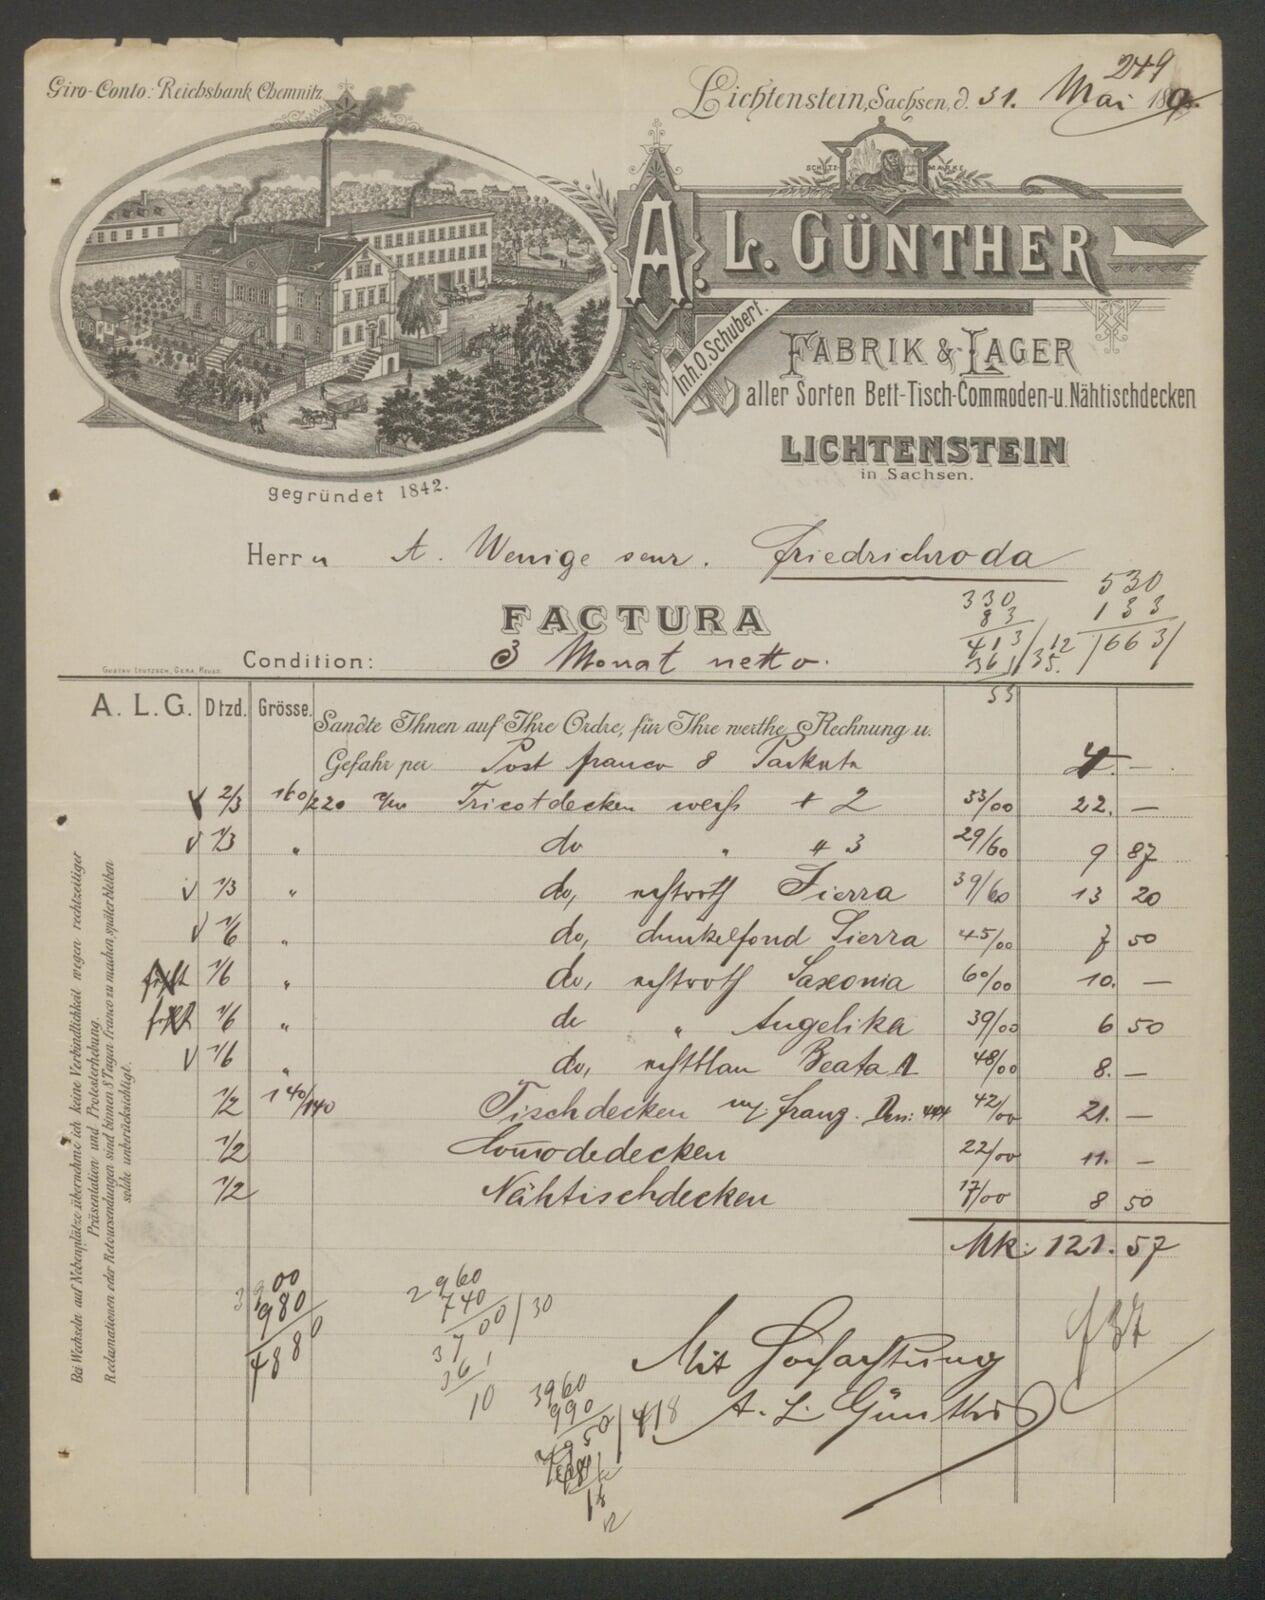 249
Giro-Conto: Reichsbank Chemnitz
Lichtenstein, Sachsen, d. 31. Mai 189
SCHUTZ MARKE
A. L. GÜNTHER
Inh. O. Schubert.
FABRIK & LAGER
aller Sorten Bett-Tisch-Commoden-u. Nähtischdecken
LICHTENSTEIN
in Sachsen.
gegründet 1842.
Herrn A. Wenige senr. Friedrichroda
330 530
83 133
FACTURA
413/12 663/
361/35.
Condition: 3 Monat netto.
GUSTAV LEUTZSCH, GERA, REUSS.
53
A. L. G. Dtzd. Grösse.
Sandte Ihnen auf Ihre Ordre, für Ihre werthe Rechnung u.
Gefahr per Post franco 8 Packete 4. —
2/3 160/220 Tricotdecken weiß # 2 33/00 22. —
1/3 " do " # 3 29/60 9 87
1/3 " do, echtroth Sierra 39/60 13 20
1/6 " do, dunkelfond Sierra 45/00 7 50
fehlt 1/6 " do, echtroth Saxonia 60/00 10. —
fehlt 1/6 " do " Angelika 39/00 6 50
1/6 " do, echtblau Beata 48/00 8. —
1/2 140/140 Tischdecken franz. Des: 444 42/00 21. —
1/2 Comodedecken 22/00 11. —
1/2 Nähtischdecken 17/00 8 50
Mk: 121. 57
Bei Wechseln auf Nebenplätze übernehme ich keine Verbindlichkeit wegen rechtzeitiger
Präsentation und Protesterhebung.
Reclamationen oder Retoursendungen sind binnen 8 Tagen franco zu machen, später bleiben
solche unberücksichtigt.
980
4880
2960
740
3700/30
361
10
3960
990
4950/418
Mit Hochachtung
A. L. Günther